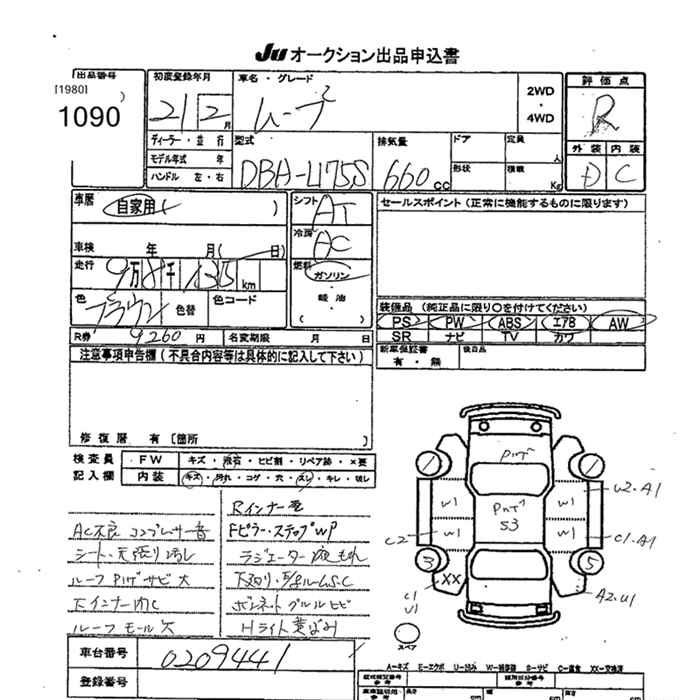 JU オークション出品申込書
出品番号
[1980]
1090
初度登録年月
21 2 月
車名・グレード
ムーブ
2WD
・
4WD
評価点
R
外装 内装
D C
ディーラー・並行
モデル年式 年
ハンドル 左・右
型式
DBA-L175S
排気量
660 cc
ドア
形状
定員 人
積載 Kg
車歴
自家用
車検 年 月( 日)
走行
9万8千135 km
色
ブラウン
色替
色コード
R券 9,260 円
名変期限 月 日
シフト
AT
冷房
AC
燃料
ガソリン
軽油
( )
セールスポイント(正常に機能するものに限ります)
装備品 (純正品に限り○を付けてください)
PS PW ABS エアB AW
SR ナビ TV カワ
新車保証書
有・無
後日品
注意事項申告欄(不具合内容等は具体的に記入して下さい)
修復歴 有 [箇所 ]
検査員
記入欄
FW キズ・飛石・ヒビ割・リペア跡・×要
内装 キズ・汚れ・コゲ・穴・スレ・キレ・切レ
AC不良 コンプレサー音
シート・天張り汚レ
ルーフ Pハゲ サビ大
ルーフ モール欠
Rインナー歪
Fピラー・ステップWP
ラジエーター液もれ
下廻り・
Hライト黄ばみ
Pハゲ
Pハゲ
S3
W1
W1
W1
W1
U2・A1
C2
C1・A1
3
5
XX
C1
U1
A2・U1
スペア
A-キズ E-エクボ U-凹み W-補修跡 S-サビ C-腐食 XX-交換済
車台番号
0209441
登録番号